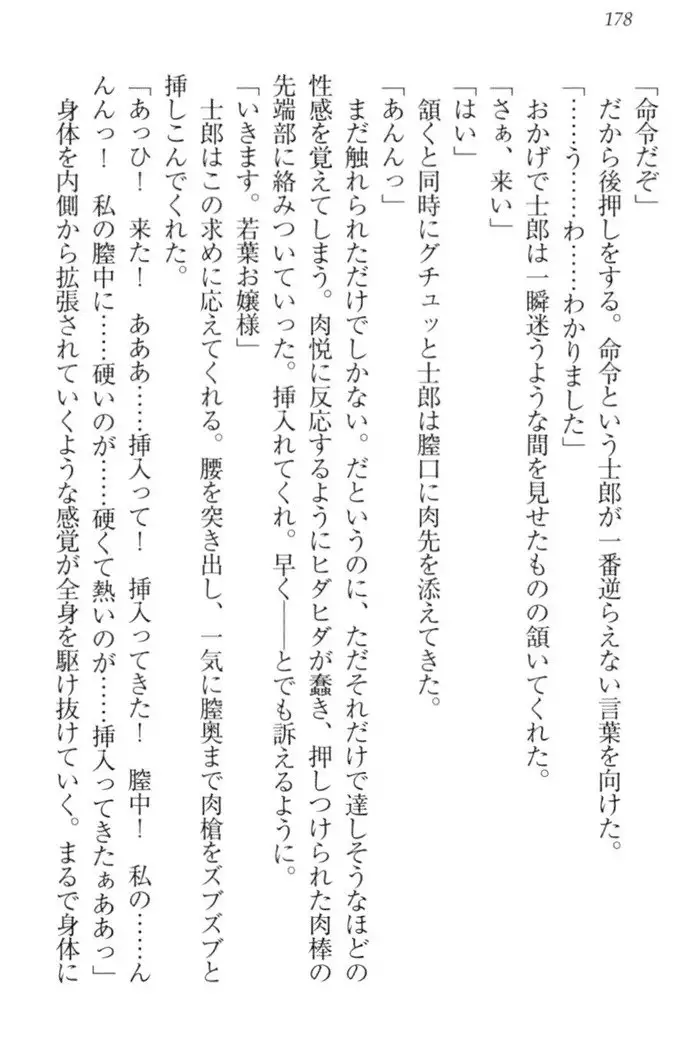 178
「命令だぞ」
だから後押しをする。命令という士郎が一番逆らえない言葉を向けた。
「……う……わ……わかりました」
おかげで士郎は一瞬迷うような間を見せたものの頷いてくれた。
「さぁ、来い」
「はい」
頷くと同時にグチュッと士郎は膣口に肉先を添えてきた。
「あんんっ」
まだ触れられただけでしかない。だというのに、ただそれだけで達しそうなほどの
性感を覚えてしまう。肉悦に反応するようにヒダヒダが蠢き、押しつけられた肉棒の
先端部に絡みついていった。挿入れてくれ。早く――とでも訴えるように。
「いきます。若葉お嬢様」
士郎はこの求めに応えてくれる。腰を突き出し、一気に膣奥まで肉槍をズブズブと
挿しこんでくれた。
「あっひ！　来た！　あああ……挿入って！　挿入ってきた！　膣中！　私の……ん
んんっ！　私の膣中に……硬いのが……硬くて熱いのが……挿入ってきたぁああっ」
身体を内側から拡張されていくような感覚が全身を駆け抜けていく。まるで身体に